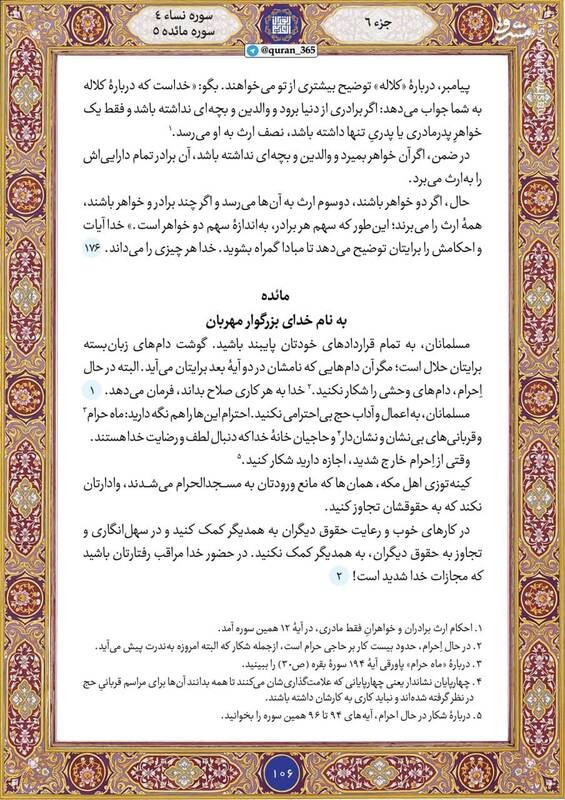 سوره نساء ٤
سوره مائده ٥
@quran_365
جزء ٦
مشرق
پیامبر، دربارهٔ «کلاله» توضیح بیشتری از تو می‌خواهند. بگو: «خداست که دربارهٔ کلاله
به شما جواب می‌دهد: اگر برادری از دنیا برود و والدین و بچه‌ای نداشته باشد و فقط یک
خواهرِ پدرمادری یا پدریِ تنها داشته باشد، نصف ارث به او می‌رسد.۱
در ضمن، اگر آن خواهر بمیرد و والدین و بچه‌ای نداشته باشد، آن برادر تمام دارایی‌اش
را به‌ارث می‌برد.
حال، اگر دو خواهر باشند، دوسوم ارث به آن‌ها می‌رسد و اگر چند برادر و خواهر باشند،
همهٔ ارث را می‌برند؛ این‌طور که سهم هر برادر، به‌اندازهٔ سهم دو خواهر است.» خدا آیات
و احکامش را برایتان توضیح می‌دهد تا مبادا گمراه بشوید. خدا هر چیزی را می‌داند. ۱۷۶
مائده
به نام خدای بزرگوار مهربان
مسلمانان، به تمام قراردادهای خودتان پایبند باشید. گوشت دام‌های زبان‌بسته
برایتان حلال است؛ مگر آن دام‌هایی که نامشان در دو آیهٔ بعد برایتان می‌آید. البته در حال
اِحرام، دام‌های وحشی را شکار نکنید.۲ خدا به هر کاری صلاح بداند، فرمان می‌دهد. ۱
مسلمانان، به اعمال و آداب حج بی‌احترامی نکنید. احترام این‌ها را هم نگه دارید: ماه حرام۳
و قربانی‌های بی‌نشان و نشان‌دار۴ و حاجیان خانهٔ خدا که دنبال لطف و رضایت خدا هستند.
وقتی از اِحرام خارج شدید، اجازه دارید شکار کنید.۵
کینه‌توزی اهل مکه، همان‌ها که مانع ورودتان به مسجدالحرام می‌شدند، وادارتان
نکند که به حقوقشان تجاوز کنید.
در کارهای خوب و رعایت حقوق دیگران به همدیگر کمک کنید و در سهل‌انگاری و
تجاوز به حقوق دیگران، به همدیگر کمک نکنید. در حضور خدا مراقب رفتارتان باشید
که مجازات خدا شدید است! ۲
۱. احکام ارث برادران و خواهرانِ فقط مادری، در آیهٔ ۱۲ همین سوره آمد.
۲. در حال اِحرام، حدود بیست کار بر حاجی حرام است، ازجمله شکار که البته امروزه به‌ندرت پیش می‌آید.
۳. دربارهٔ «ماه حرام» پاورقی آیهٔ ۱۹۴ سورهٔ بقره (ص۳۰) را ببینید.
۴. چهارپایان نشاندار یعنی چهارپایانی که علامت‌گذاری‌شان می‌کنند تا همه بدانند آن‌ها برای مراسم قربانیِ حج
در نظر گرفته شده‌اند و نباید کاری به کارشان داشته باشند.
۵. دربارهٔ شکار در حال احرام، آیه‌های ۹۴ تا ۹۶ همین سوره را بخوانید.
۱۰۶